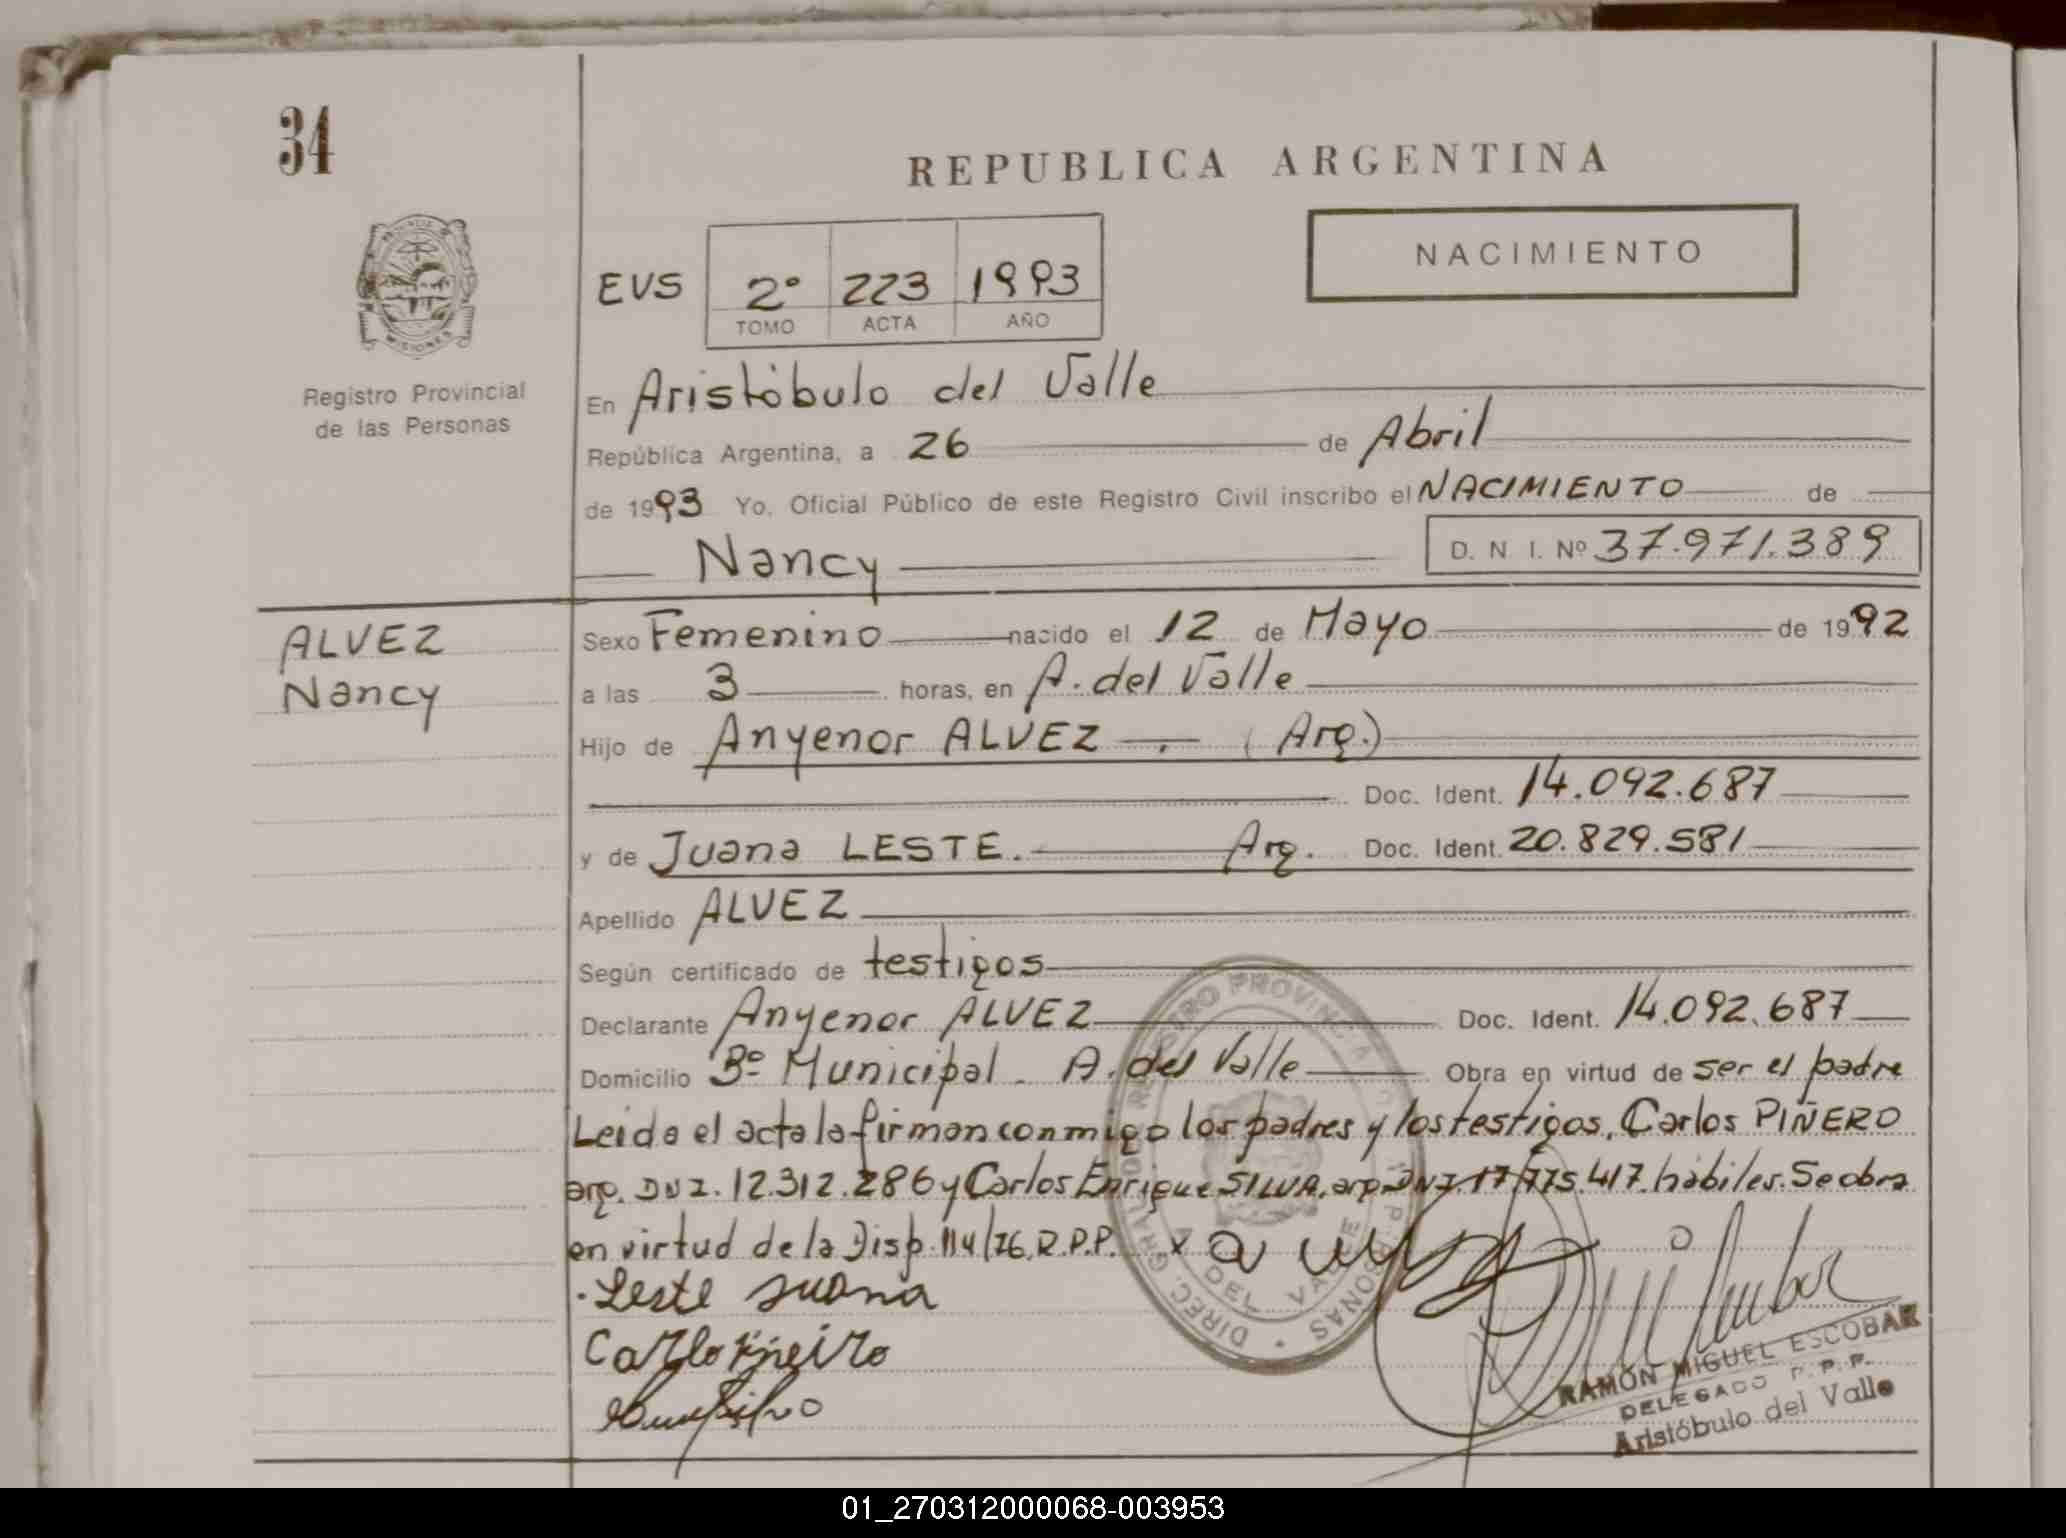 34
REPUBLICA ARGENTINA
PROVINCIA DE MISIONES
EVS 2º 223 1993
TOMO ACTA AÑO
NACIMIENTO
Registro Provincial
de las Personas
En Aristóbulo del Valle
República Argentina, a 26 de Abril
de 1993 Yo, Oficial Público de este Registro Civil inscribo el NACIMIENTO de
Nancy
D. N. I. Nº 37.971.389
ALVEZ
Nancy
Sexo Femenino nacido el 12 de Mayo de 1992
a las 3 horas, en A. del Valle
Hijo de Anyenor ALVEZ . (Arg.)
Doc. Ident. 14.092.687
y de Juana LESTE. Arg. Doc. Ident. 20.829.581
Apellido ALVEZ
Según certificado de testigos
Declarante Anyenor ALVEZ Doc. Ident. 14.092.687
Domicilio Bº Municipal. A. del Valle Obra en virtud de ser el padre
Leida el acta la firman conmigo los padres y los testigos, Carlos PIÑERO
arg. DNI. 12.312.286 y Carlos Enrique SILVA, arg. DNI. 17.775.417. hábiles. Se obra
en virtud de la Disp. 114/76. R.P.P.
Leste Juana
DIREC. GRAL. DE REGISTRO PROVINCIAL DE PERSONAS
A. DEL VALLE
RAMÓN MIGUEL ESCOBAR
DELEGADO R.P.P.
Aristóbulo del Valle
01_270312000068-003953